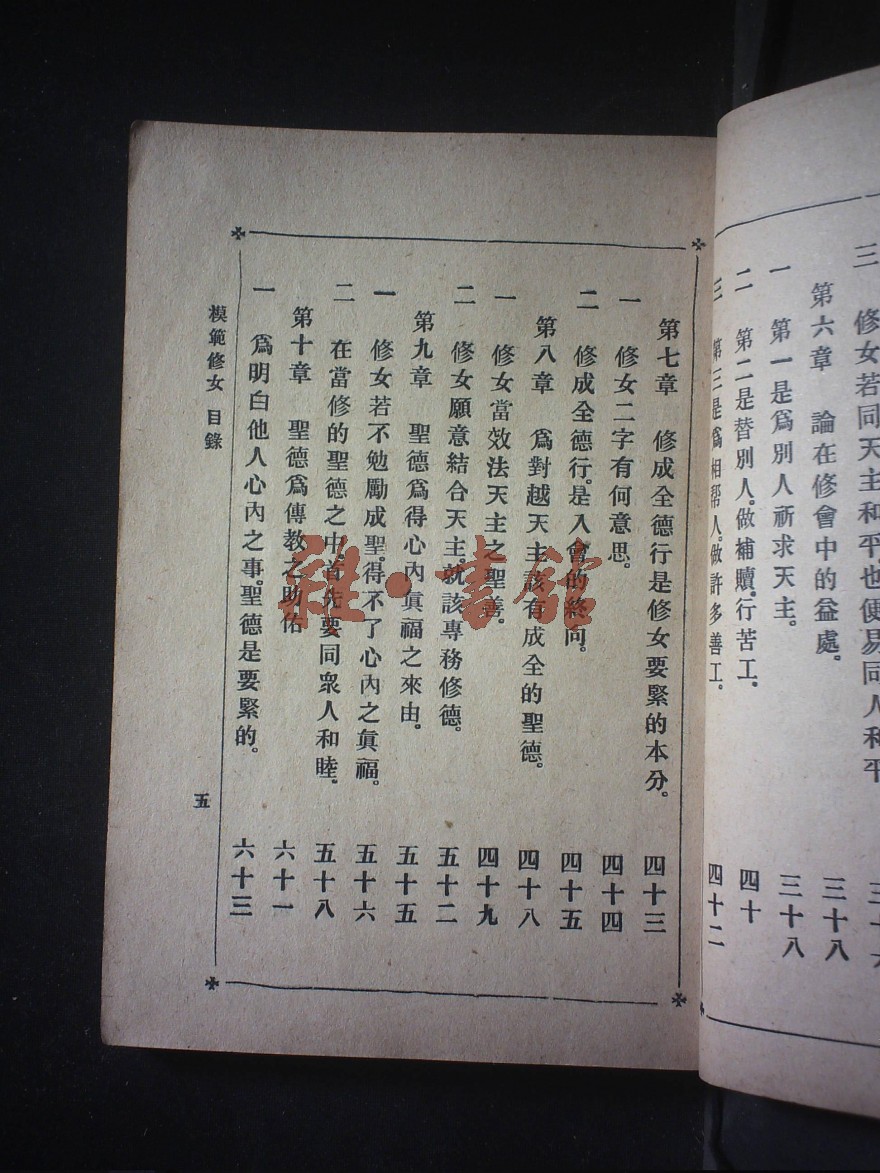 三　修女若同天主和平。也便易同人和平
第六章　論在修會中的益處。　三十八
一　第一是爲別人祈求天主。　三十八
二　第二是替別人。做補贖。行苦工。　四十
三　第三是爲相帮人。做許多善工。　四十二
第七章　修成全德行是修女要緊的本分。　四十三
一　修女二字有何意思。　四十四
二　修成全德行。是入會的終向。　四十五
第八章　爲對越天主該有成全的聖德。　四十八
一　修女當效法天主之聖善。　四十九
二　修女願意結合天主。就該專務修德。　五十二
第九章　聖德爲得心內眞福之來由。　五十五
一　修女若不勉勵成聖。得不了心內之眞福。　五十六
二　在當修的聖德之中。首先要同衆人和睦。　五十八
第十章　聖德爲傳教之助佑　六十一
一　爲明白他人心內之事。聖德是要緊的。　六十三
模範修女　目錄　五
雜·書館